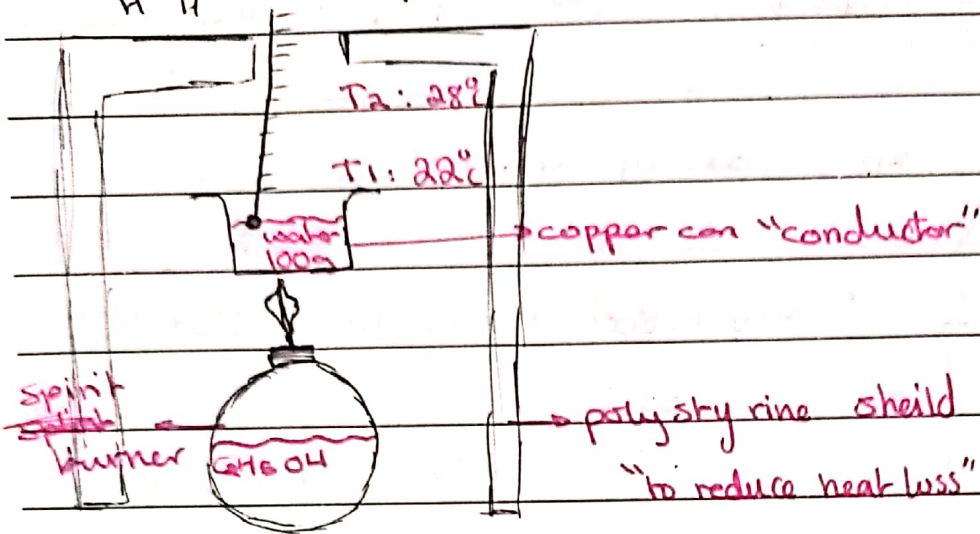 H H
T2: 28°C
T1: 22°C
water
100g
copper can "conductor"
spirit
burner
C2H5OH
polystyrine sheild
"to reduce heat loss"